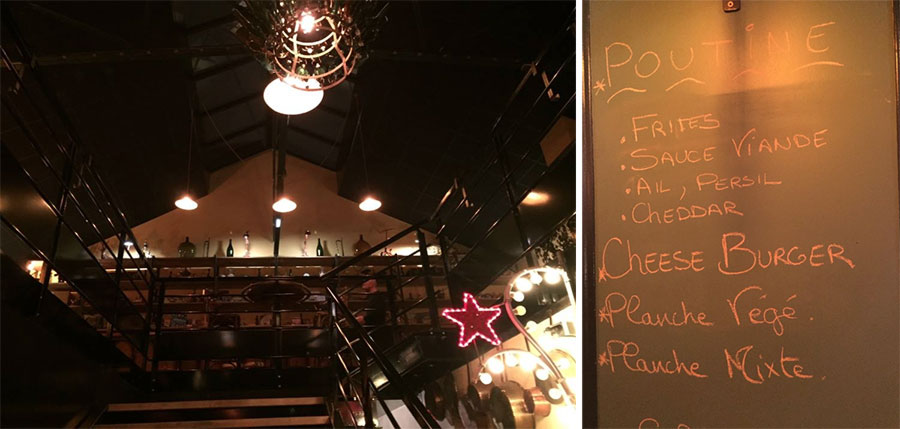 *POUTINE
. FRITES
. SAUCE VIANDE
. AIL, PERSIL
. CHEDDAR
*CHEESE BURGER
*Planche Végé.
*Planche Mixte.